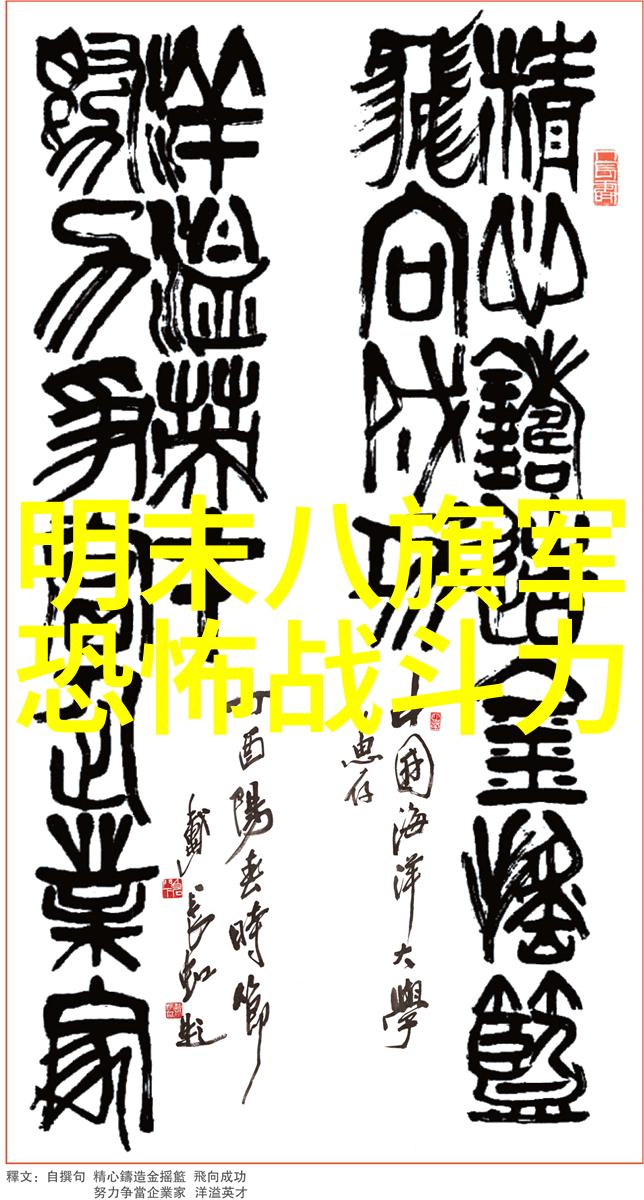 精心鑄造金搖籃
飛向成功
洋溢英才
努力爭當企業家
中國海洋大學
惠存
丁酉陽春時節
戴長虹題
明末八旗军
恐怖战斗力
釋文：自撰句 精心鑄造金摇籃 飛向成功
努力争當企業家 洋溢英才